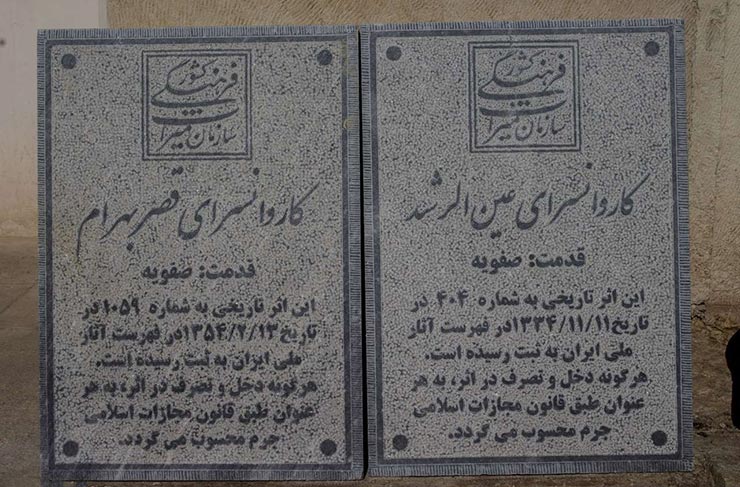 سازمان میراث
فرهنگی کشور
کاروانسرای عین الرشد
قدمت: صفویه
این اثر تاریخی به شماره ۴۰۴ در
تاریخ ۱۳۳۴/۱۱/۱۱در فهرست آثار
ملی ایران به ثبت رسیده است.
هرگونه دخل و تصرف در اثر، به هر
عنوان طبق قانون مجازات اسلامی
جرم محسوب می گردد.
سازمان میراث
فرهنگی کشور
کاروانسرای قصر بهرام
قدمت: صفویه
این اثر تاریخی به شماره ۱۰۵۹ در
تاریخ ۱۳۵۴/۲/۱۳در فهرست آثار
ملی ایران به ثبت رسیده است.
هرگونه دخل و تصرف در اثر، به هر
عنوان طبق قانون مجازات اسلامی
جرم محسوب می گردد.